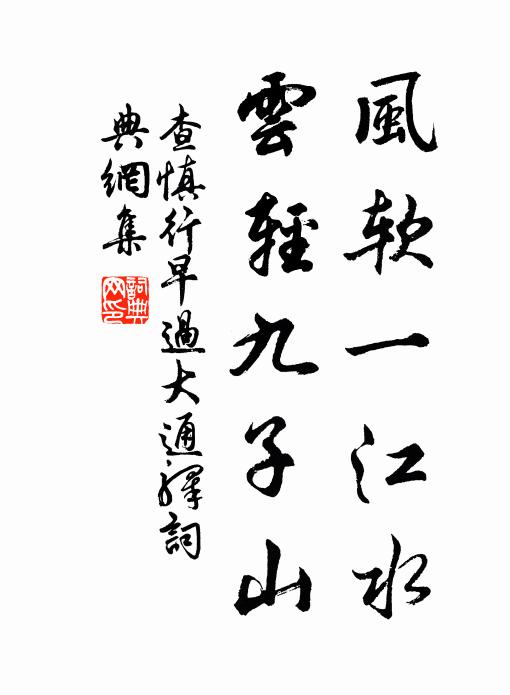 風軟一江水
雲輕九子山
查慎行早過大通驛詞
典網集
詞典
网印